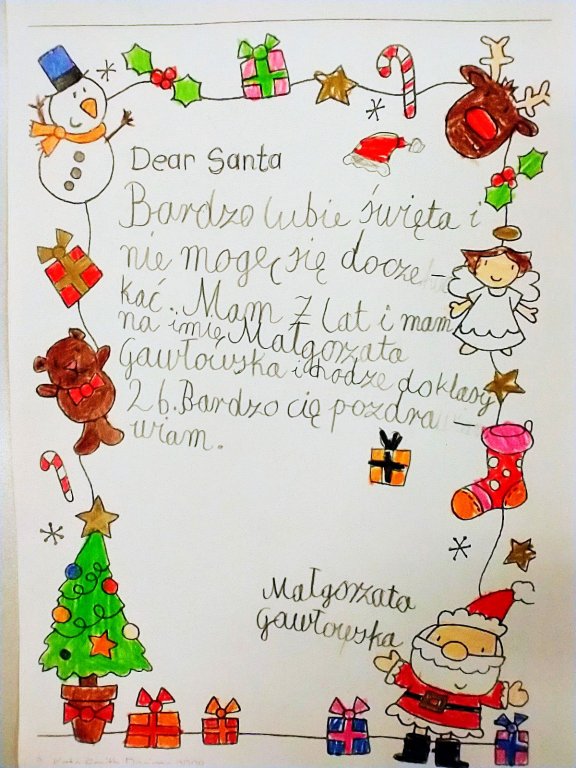 Dear Santa
Bardzo lubie święta i
nie mogę się docze-
kać. Mam 7 lat i mam
na imię Małgorzata
Gawłowska i hodzę do klasy
2 b. Bardzo cię pozdra-
wiam.
Małgorzata
Gawłowska